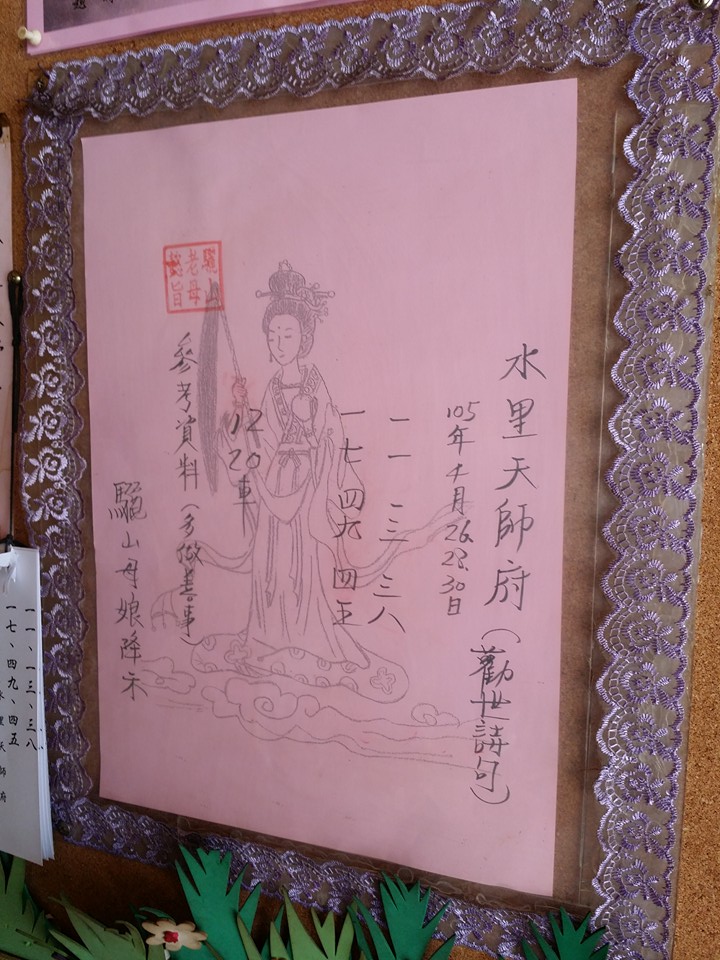 水里天師府(勸世詩句)
105年十月26.28.30日
一一 一三 三八
一七 四九 四五
12 20 車
參考資料(多做善事)
驪山母娘降示
驪山
老母
懿旨
一一、一三、三八
一七、四九、四五
水里天師府